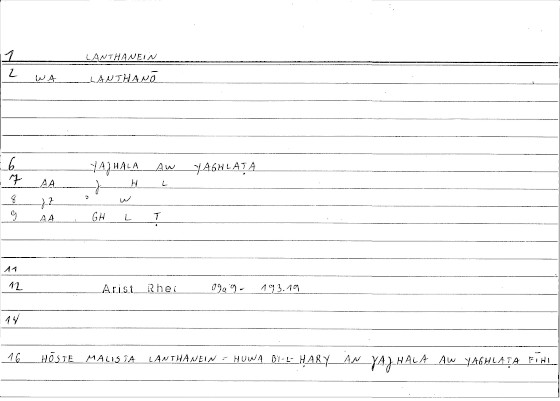 1 LANTHANEIN
2 WA LANTHANŌ
6 YAJHALA AW YAGHLAṬA
7 AA J H L
8 J7 ᵓ W
9 AA GH L Ṭ
11
12 Arist Rhei 09a9- 193.19
14
16 HŌSTE MALISTA LANTHANEIN - HUWA BI-L-ḤARY AN YAJHALA AW YAGHLAṬA FĪHI